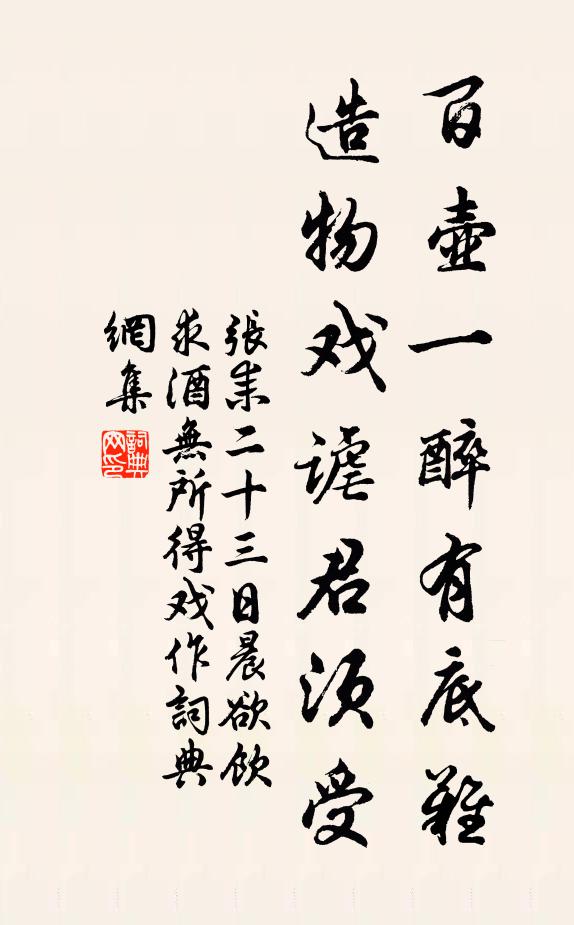 百壺一醉有底難
造物戏謔君須受
張耒二十三日晨欲飲
求酒無所得戏作詞典
網集
詞典網印